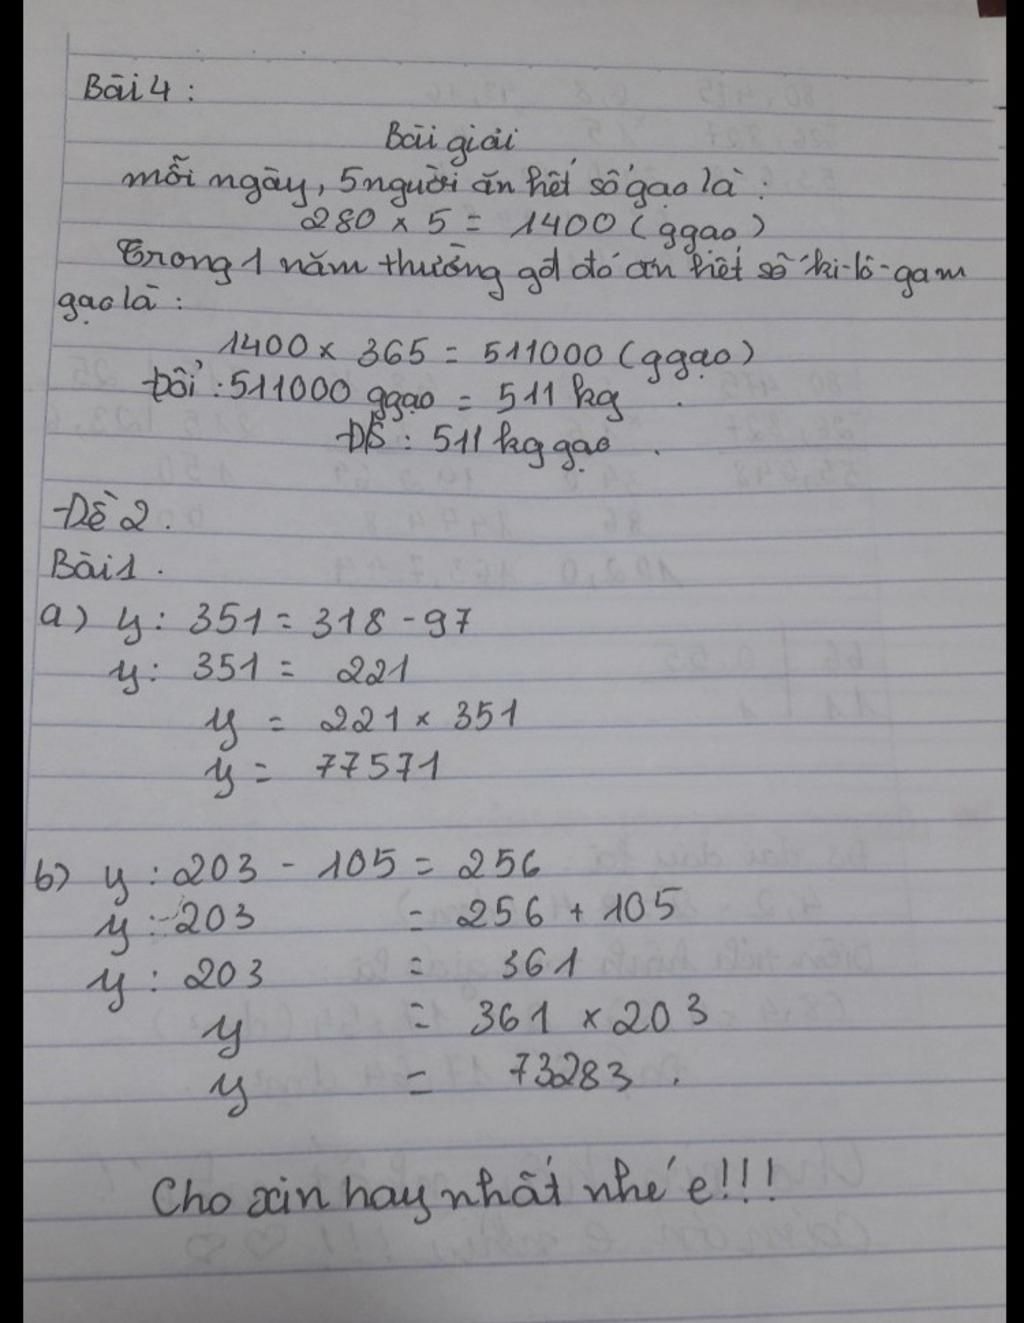 Bài 4 :
Bài giải
mỗi ngày, 5 người ăn hết số gạo là :
280 × 5 = 1400 ( g gạo )
Trong 1 năm thường gđ đó ăn hết số ki-lô-gam
gạo là :
1400 × 365 = 511000 ( g gạo )
Đổi : 511000 g gạo = 511 kg .
ĐS : 511 kg gạo .
Đề 2 .
Bài 1 .
a) y : 351 = 318 - 97
y : 351 = 221
y = 221 × 351
y = 77571
b) y : 203 - 105 = 256
y : 203 = 256 + 105
y : 203 = 361
y = 361 × 203
y = 73283 .
Cho xin hay nhất nhé e!!!